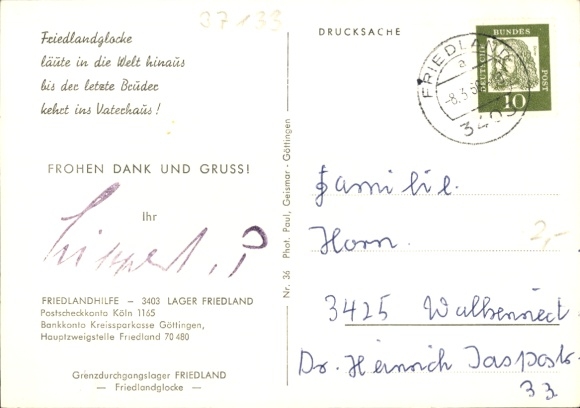 37133
Friedlandglocke
läute in die Welt hinaus
bis der letzte Bruder
kehrt ins Vaterhaus!
FROHEN DANK UND GRUSS!
Ihr
FRIEDLANDHILFE – 3403 LAGER FRIEDLAND
Postscheckkonto Köln 1165
Bankkonto Kreissparkasse Göttingen,
Hauptzweigstelle Friedland 70 480
Grenzdurchgangslager FRIEDLAND
— Friedlandglocke —
Nr. 36 Phot. Paul, Geismar - Göttingen
DRUCKSACHE
FRIEDLAND
a
-8.3.6
3403
DEUTSCHE
BUNDES
POST
10
Familie
Horn
2,-
3425 Walkenried
Dr. Heinrich Jaspostr.
33